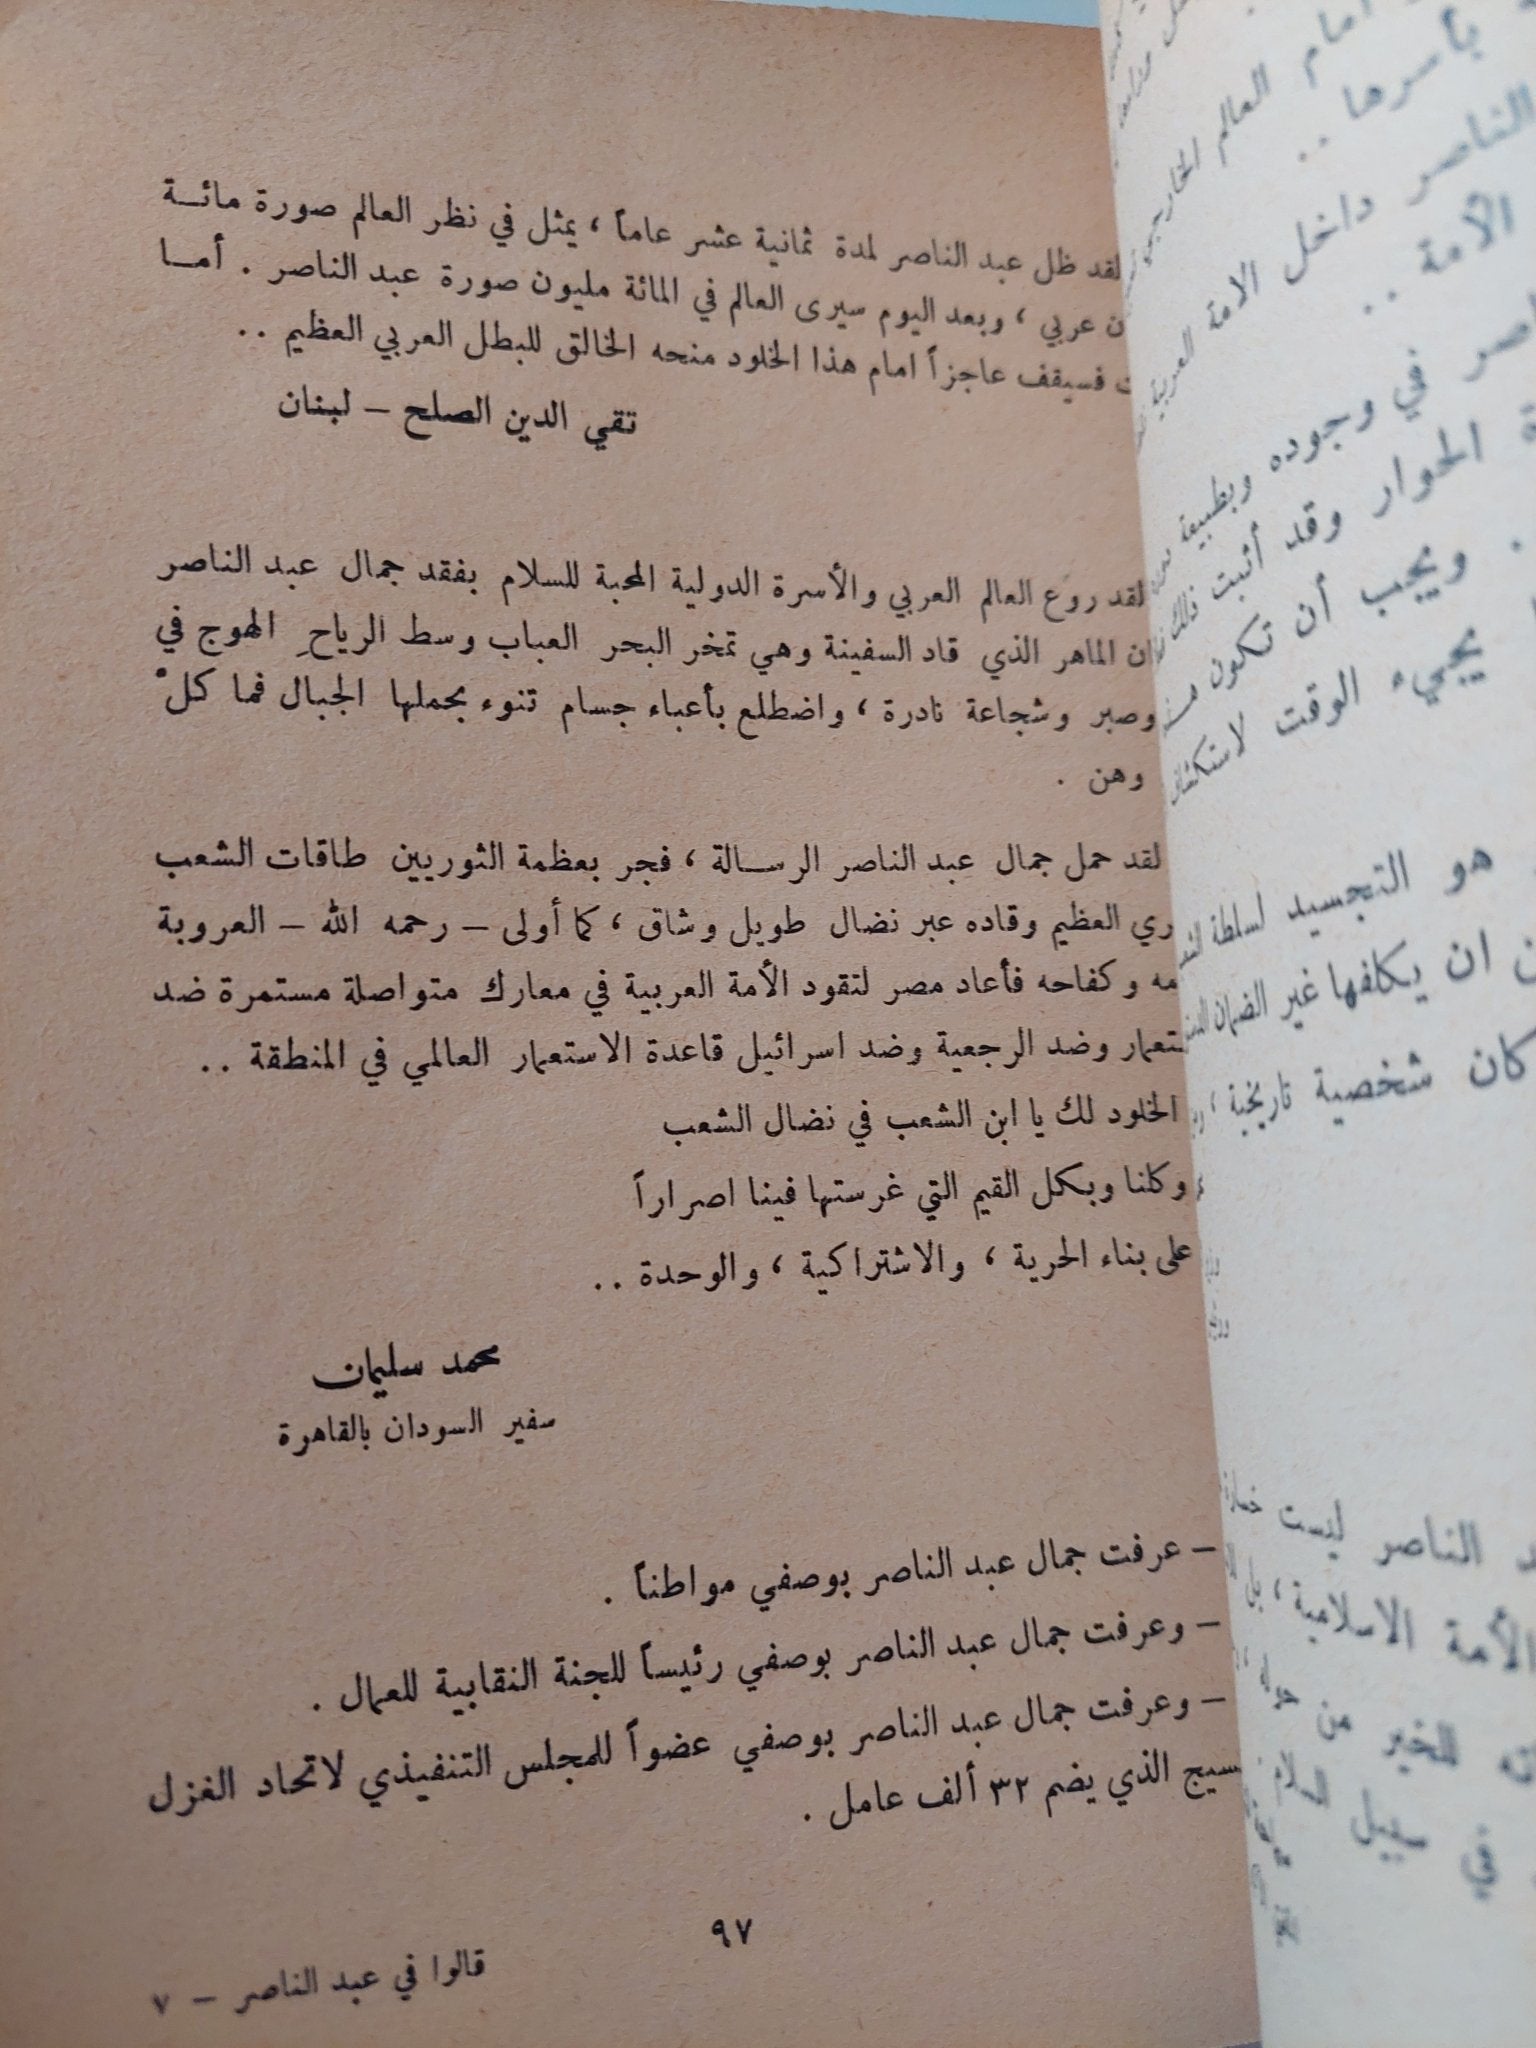 لقد ظل عبد الناصر لمدة ثمانية عشر عاماً ، يمثل في نظر العالم صورة مائـــة
عربي ، وبعد اليوم سيرى العالم في المائة مليون صورة عبد الناصر . أمـــا
فسيقف عاجزاً امام هذا الخلود منحه الخالق للبطل العربي العظيم ..
تقي الدين الصلح – لبنان
لقد روّع العالم العربي والأسرة الدولية المحبة للسلام بفقد جمال عبد الناصر
الماهر الذي قاد السفينة وهي تمخر البحر العباب وسط الرياحِ الهوج في
وصبر وشجاعة نادرة ، واضطلع بأعباء جسام تنوء بحملها الجبال فما كلْ
وهن .
لقد حمل جمال عبد الناصر الرســالة ، فجر بعظمة الثوريين طاقات الشعب
العظيم وقاده عبر نضال طويل وشاق ، كما أولى – رحمه الله – العروبة
وكفاحه فأعاد مصر لتقود الأمة العربية في معارك متواصلة مستمرة ضد
وضد الرجعية وضد اسرائيل قاعدة الاستعمار العالمي في المنطقة ..
الخلود لك يا ابن الشعب في نضال الشعب
وكلنا وبكل القيم التي غرستها فينا اصراراً
على بناء الحرية ، والاشتراكية ، والوحدة ..
محمد سليمان
سفير السودان بالقاهرة
– عرفت جمال عبد الناصر بوصفي مواطناً .
– وعرفت جمال عبد الناصر بوصفي رئيساً للجنة النقابية للعمال .
– وعرفت جمال عبد الناصر بوصفي عضواً للمجلس التنفيذي لاتحاد الغزل
الذي يضم ٣٢ ألف عامل .
٩٧
قالوا في عبد الناصر – ٧
امام العالم
بأسرها ..
الناصر داخل الامة العربية
الأمة ..
في وجوده وبطبيعة
الحوار وقد أثبت ذلك
. ويجب أن تكون
يجيء الوقت
هو التجسيد لسلطة
ان يكلفها غير الضمان
كان شخصية تاريخية ،
الناصر ليست
الأمة الاسلامية ، بل
للخير من
في سبيل السلام